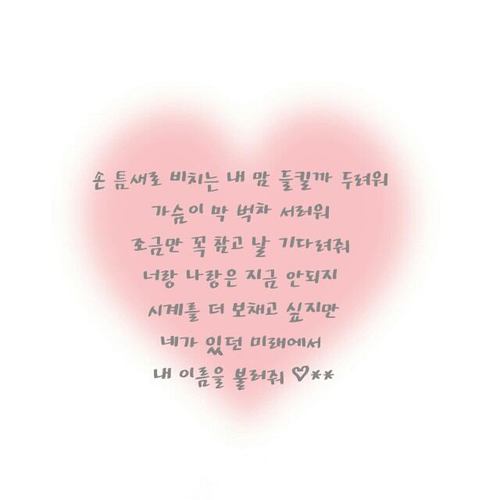 손 틈새로 비치는 내 맘 들킬까 두려워
가슴이 막 벅차 서러워
조금만 꼭 참고 날 기다려줘
너랑 나랑은 지금 안되지
시계를 더 보채고 싶지만
네가 있던 미래에서
내 이름을 불러줘 ♡**